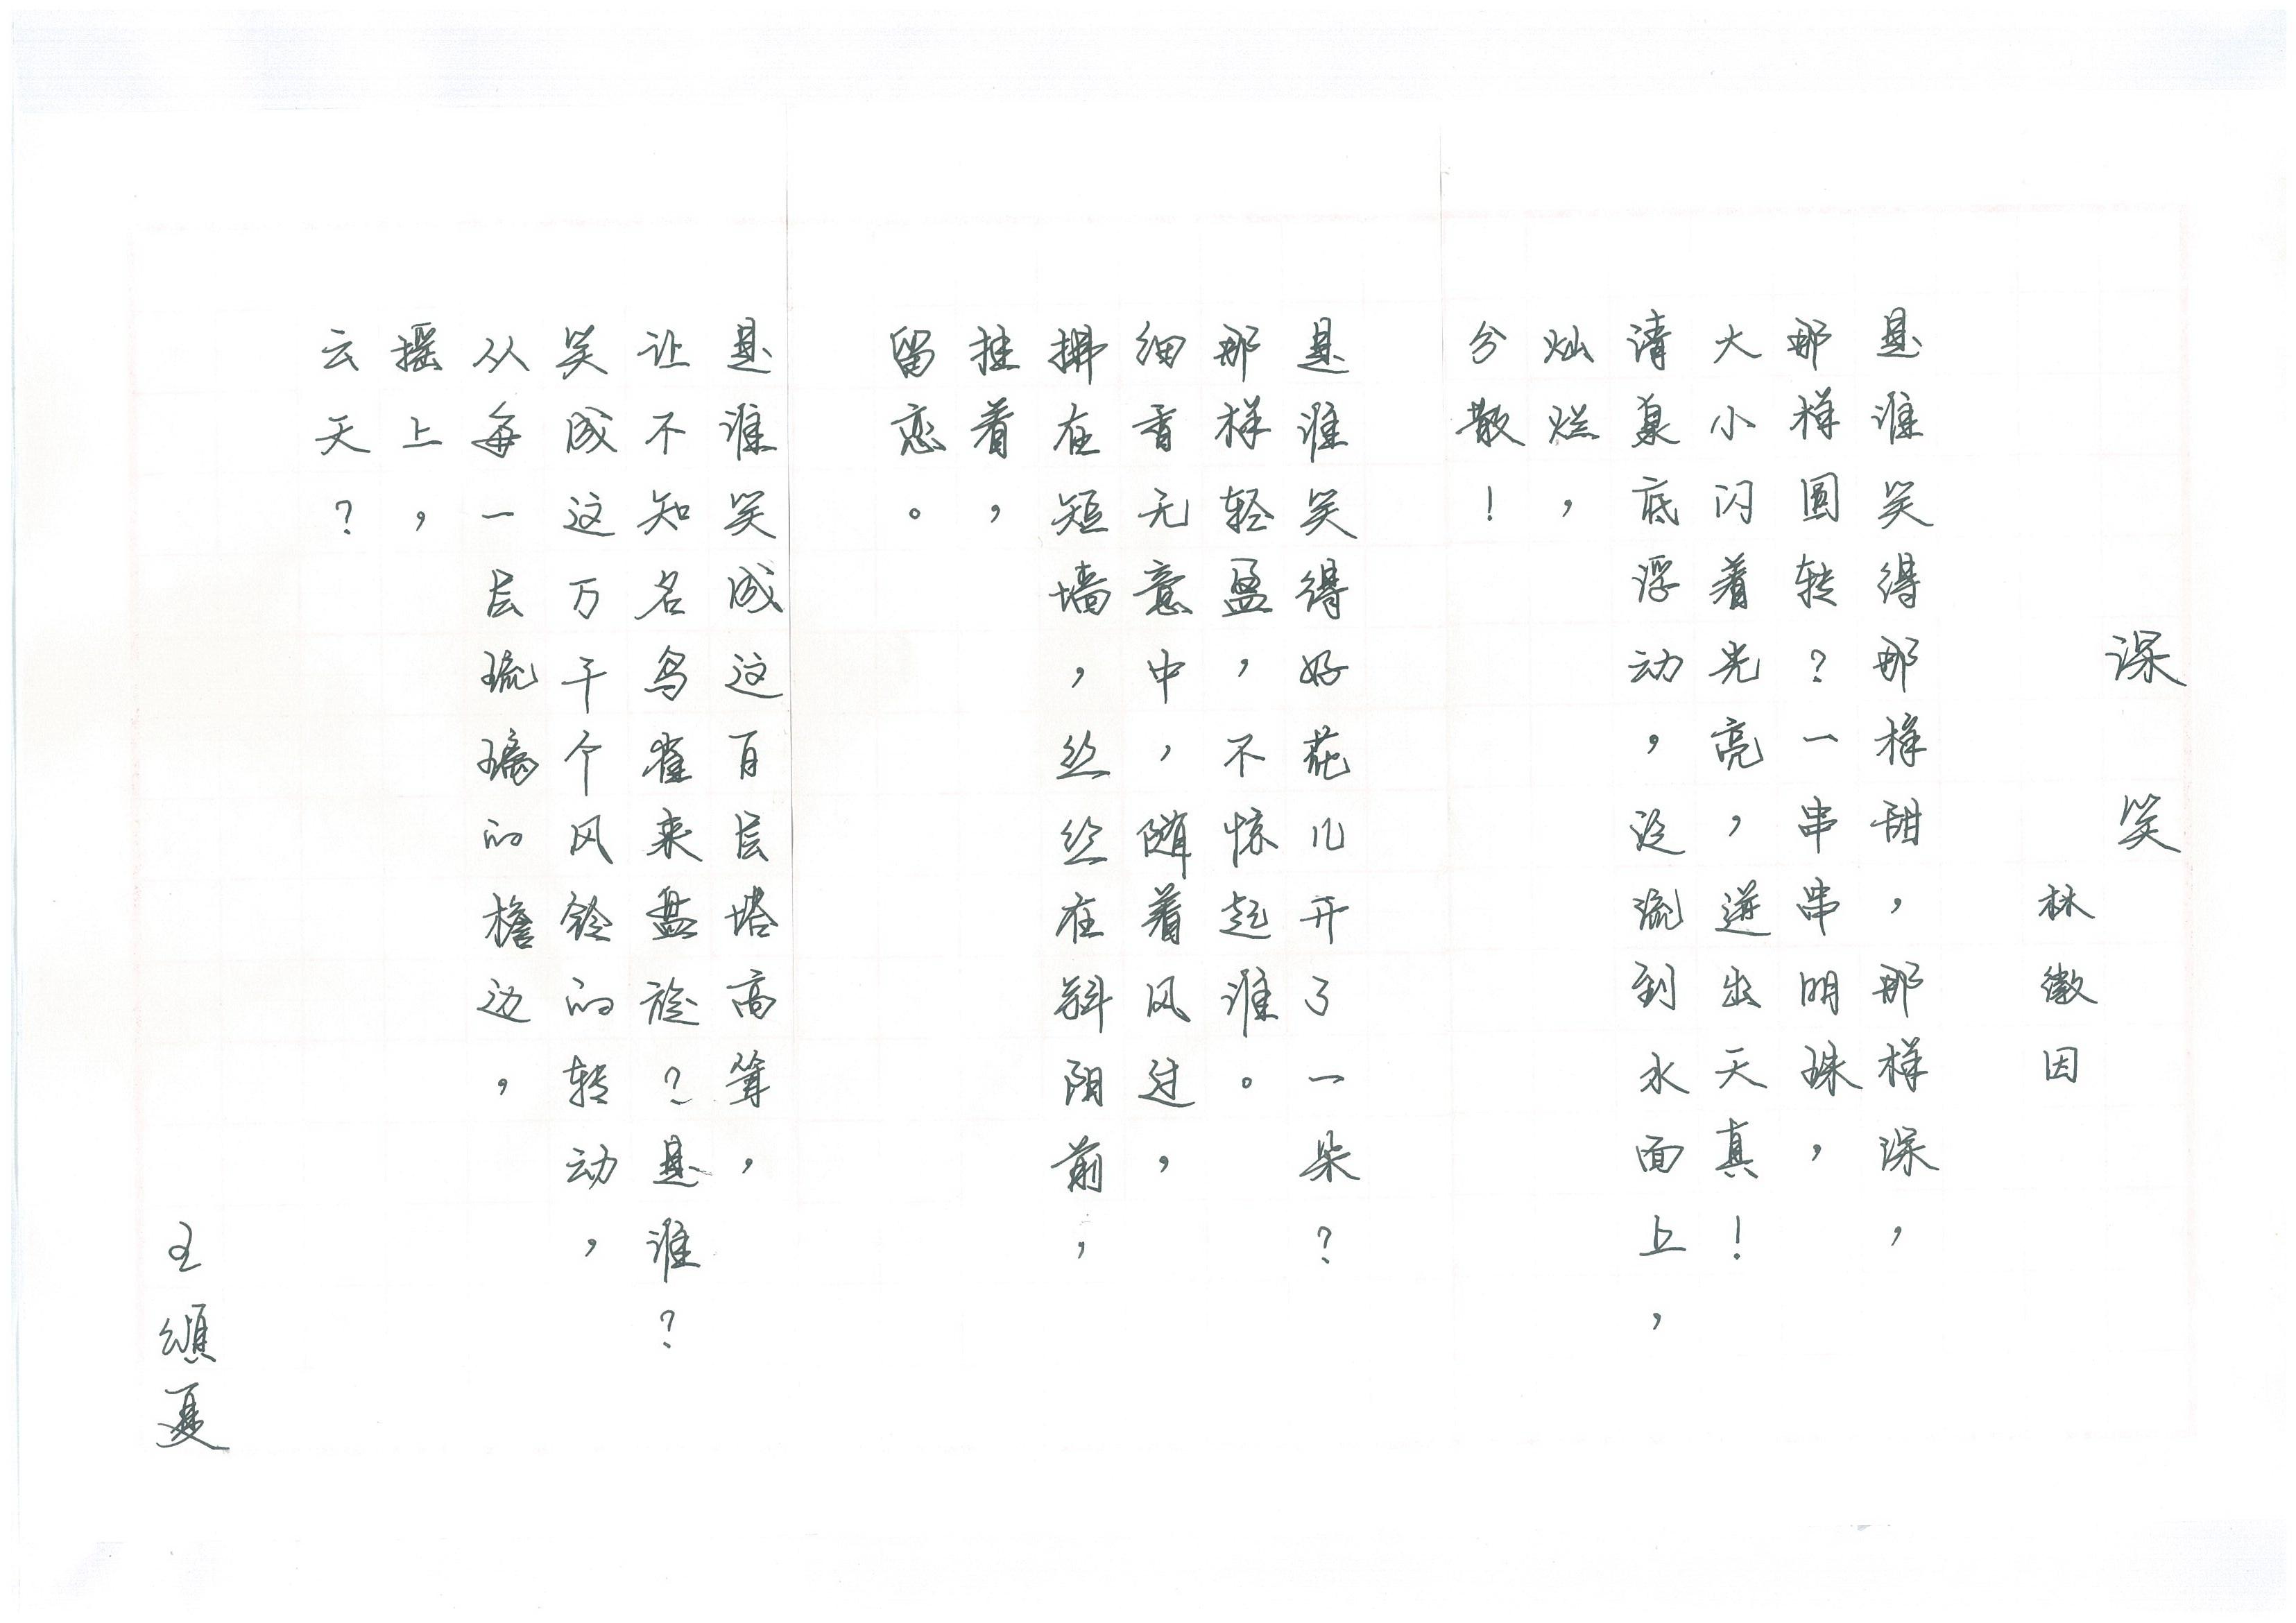 深笑
林徽因
是谁笑得那样甜，那样深，
那样圆转？一串串明珠，
大小闪着光亮，迸出天真！
清泉底浮动，泛流到水面上，
灿烂，
分散！
是谁笑得好花儿开了一朵？
那样轻盈，不惊起谁。
细香无意中，随着风过，
拂在短墙，丝丝在斜阳前，
挂着，
留恋。
是谁笑成这百层塔高耸，
让不知名鸟雀来盘旋？是谁？
笑成这万千个风铃的转动，
从每一层琉璃的檐边，
摇上，
云天？
王颂夏